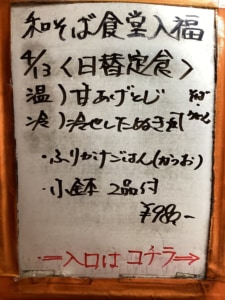 和そば食堂入福
4/13 <日替定食>
温) 甘あげとじ そば・うどん
冷) 冷せしたぬき風
・ふりかけごはん(かつお)
・小鉢 2品付
¥980-
入口は コチラ→